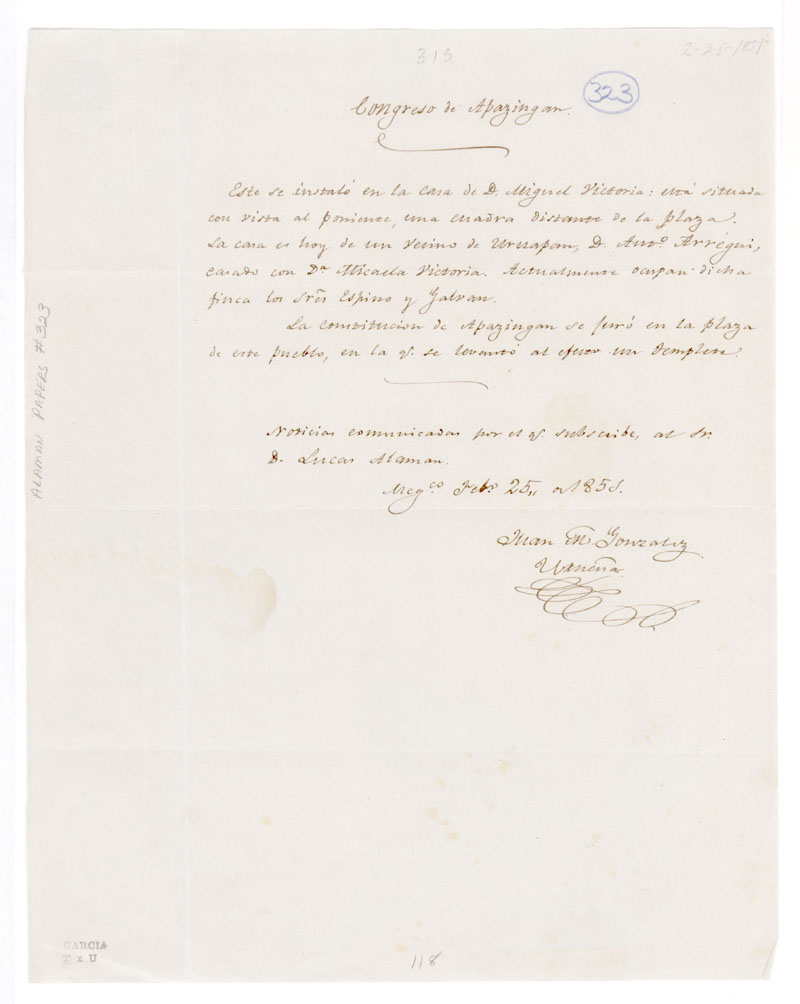 313
2-25-1851
323
Congreso de Apazingan.
Este se instaló en la casa de D. Miguel Victoria: está situada
con vista al poniente, una cuadra distante de la plaza.
La casa es hoy de un vecino de Uruapan, D. Antº. Arregui,
casado con Dª Micaela Victoria. Actualmente ocupan dicha
finca los Srēs Espino y Galvan.
La constitucion de Apazingan se juró en la plaza
de este pueblo, en la q. se levantó al efecto un templete.
Noticias comunicadas por el q. subscribe, al Sr.
D. Lucas Alaman.
Megco Febº 25,, 1851.
Juan M Gonzalez
Urueña
ALAMAN PAPERS #323
GARCIA
T x U
118